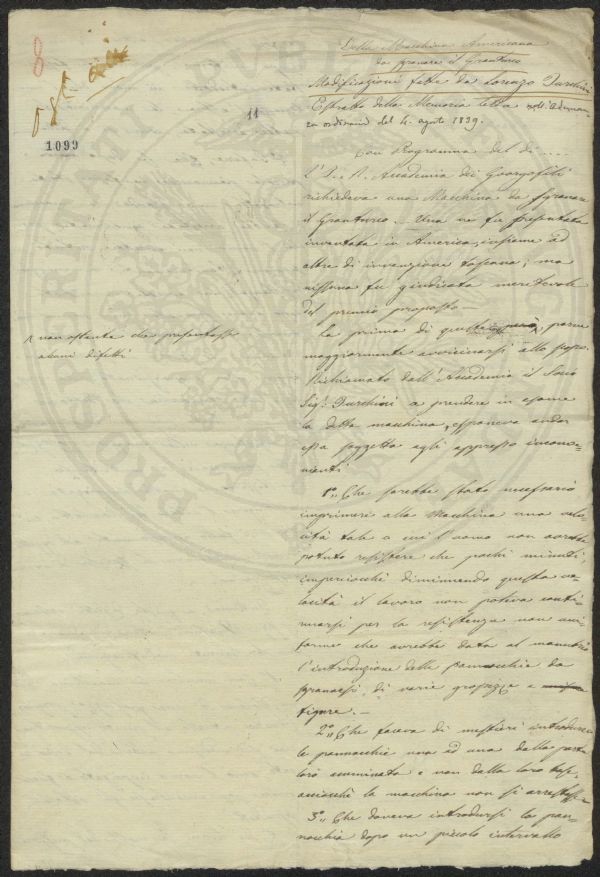 8
1099
11
Della Macchina Americana
da sgranare il Granturco
Modificazioni fatte da Lorenzo Turchini
Estratto della Memoria letta nell'Adunan-
za ordinaria del 4. agosto 1839.
Con Programma del dì ....
l'I. e R. Accademia dei Georgofili
richiedeva una Macchina da sgranare
il Granturco. Una ne fu presentata
inventata in America, insieme ad
altre di invenzione toscana; ma
nissuna fu giudicata meritevole
del premio proposto —
La prima di queste però, parve
maggiormente avvicinarsi allo scopo.
non ostante che presentasse
alcuni difetti
Richiamato dall'Accademia il Socio
Sig.r Turchini a prendere in esame
la detta macchina, esponeva andar
essa soggetta agli appresso inconve-
nienti
1.o Che sarebbe stato necessario
imprimere alla Macchina una velo-
cità tale a cui l'uomo non avrebbe
potuto resistere che pochi minuti,
imperciocchè diminuendo questa ve-
locità il lavoro non poteva conti-
nuarsi per la resistenza non uni-
forme che avrebbe data al manubrio
l'introduzione delle pannocchie da
sgranarsi, di varie grossezze e
figure. —
2.o Che faceva di mestieri introdurre
le pannocchie una ad una dalla parte
loro acuminata e non dalla loro base,
acciocchè la macchina non si arrestasse
3.o Che doveva introdursi la pan-
nocchia dopo un piccolo intervallo